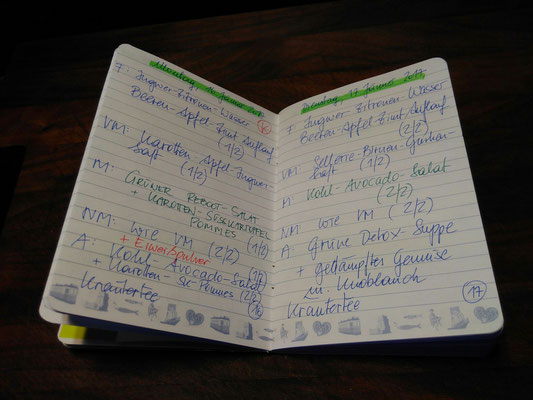 Montag, 16. Januar 2017
F: Ingwer-Zitronen-Wasser
Beeren-Apfel-Zimt Auflauf
(1/2)
VM: Karotten-Apfel-Ingwer-
saft (1/2)
M: GRÜNER REBOOT-SALAT
+ KAROTTEN-SÜSSKARTOFFEL
POMMES (1/2)
NM: wie VM (2/2)
+ Eiweißpulver
A: Kohl-Avocado-Salat (1/2)
+ Karotten-SK-Pommes (2/2)
Kräutertee
16
Dienstag, 17. Januar 2017
F: Ingwer Zitronen Wasser
Beeren-Apfel-Zimt Auflauf
(2/2)
VM: Sellerie-Birnen-Gurken-
saft (1/2)
M: Kohl-Avocado-Salat
(2/2)
NM: wie VM (2/2)
A: Grüne Detox-Suppe
+ gedämpftes Gemüse
in Knoblauch
Kräutertee
17